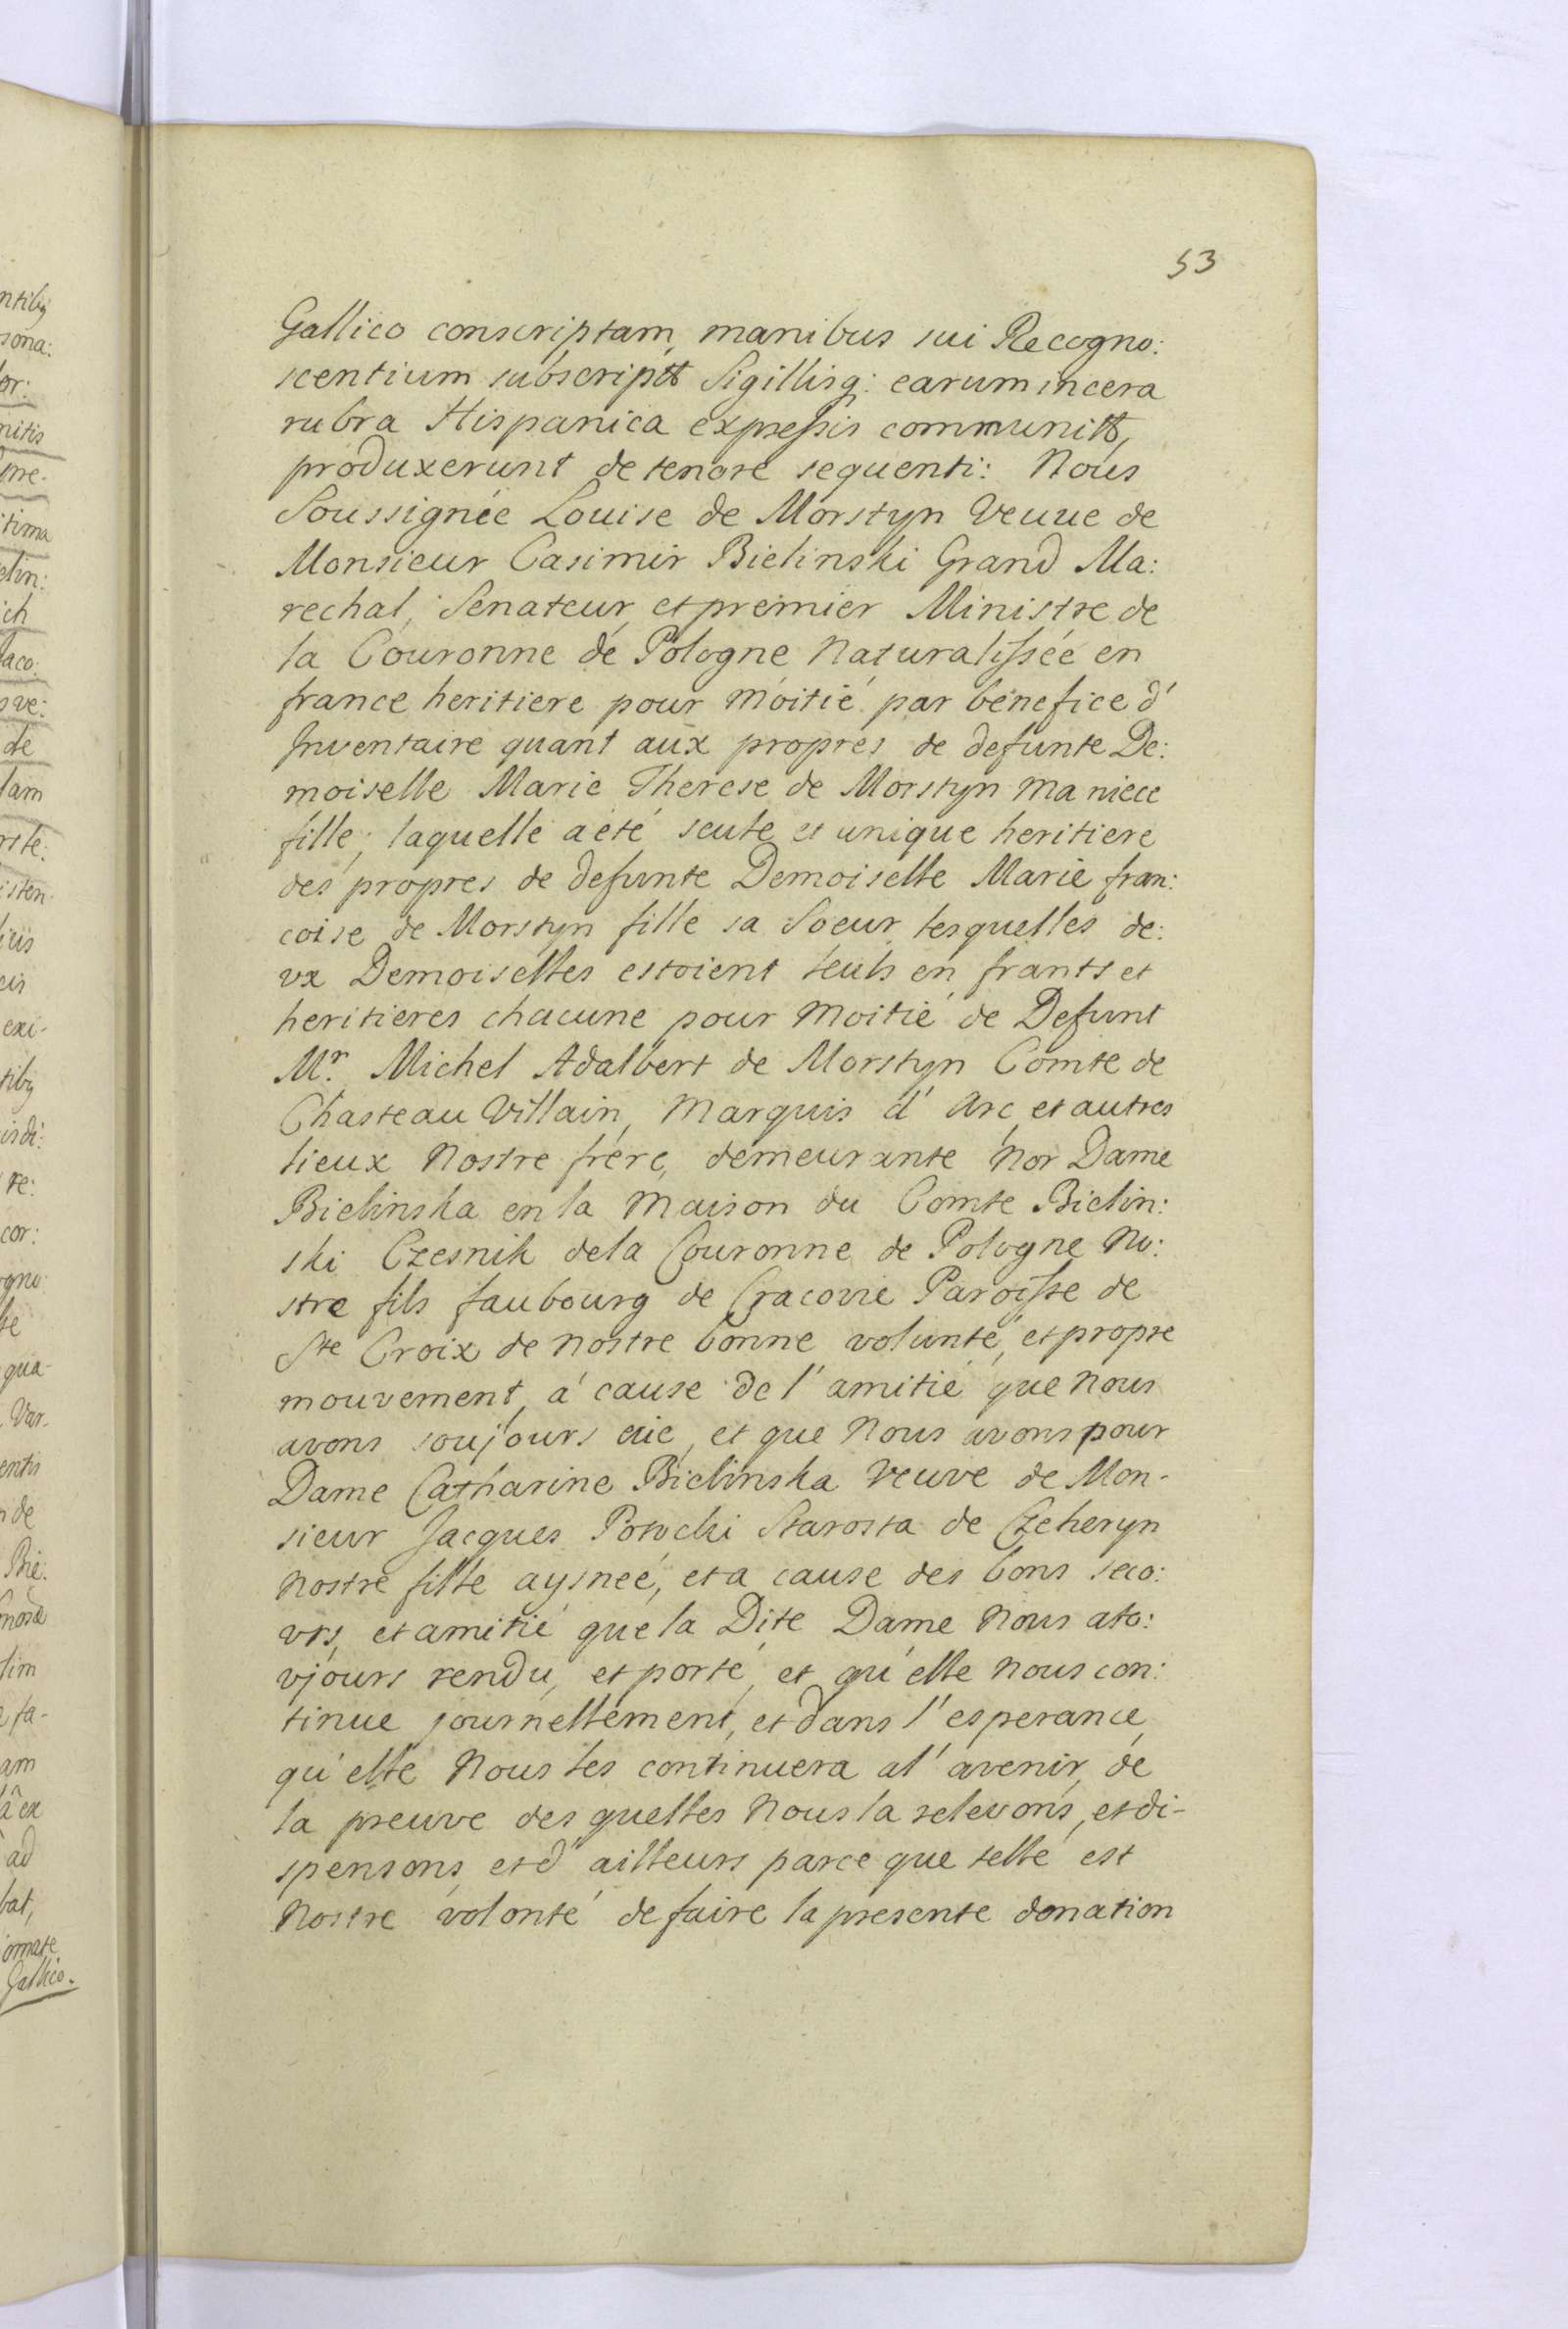 53
Gallico conscriptam, manibus sui Recogno:
scentium subscriptã Sigillisq: earum in cera
rubra Hispanica expressis communitã,
produxerunt de tenore sequenti: Nous
Soussignée Louise de Morstyn Veuue de
Monsieur Casimir Bielinski Grand Ma:
rechal, Senateur, et premier Ministre de
la Couronne de Pologne Naturalissée en
france heritiere pour moitié par benefice d'
Inventaire quant aux propres de defunte De:
moiselle Marie Therese de Morstyn ma niece
fille, laquelle a eté seule et unique heritiere
des propres de defunte Demoiselle Marie fran:
coise de Morstyn fille sa Soeur, lesquelles de:
ux Demoiselles estoient seuls en frants et
heritieres chacune pour Moitié de Defunt
Mr. Michel Adalbert de Morstyn Comte de
Chasteau Villain, Marquis d' Arc, et autres
lieux Nostre frere, demeurante Nor Dame
Bielinska en la Maison du Comte Bielin:
ski Czesnik de la Couronne de Pologne No:
stre fils faubourg de Cracovie Paroisse de
Ste Croix de nostre bonne volunté, et propre
mouvement, á cause de l' amitié que Nous
avons soujours eüe, et que Nous avons pour
Dame Catharine Bielinska Veuve de Mon-
sieur Jacques Potocki Starosta de Czeheryn
Nostre fille aysneé, et a cause des bons seco:
urs, et amitié que la Dite Dame Nous a to:
ujours rendu, et porté, et qu' elle Nous con:
tinue journellement, et dans l' esperance,
qu' elle Nous les continuera a l' avenir, de
la preuve des quelles Nous la relevons, et di-
spensons, et d' ailleurs parce que telle est
Nostre volonté de faire la presente donation